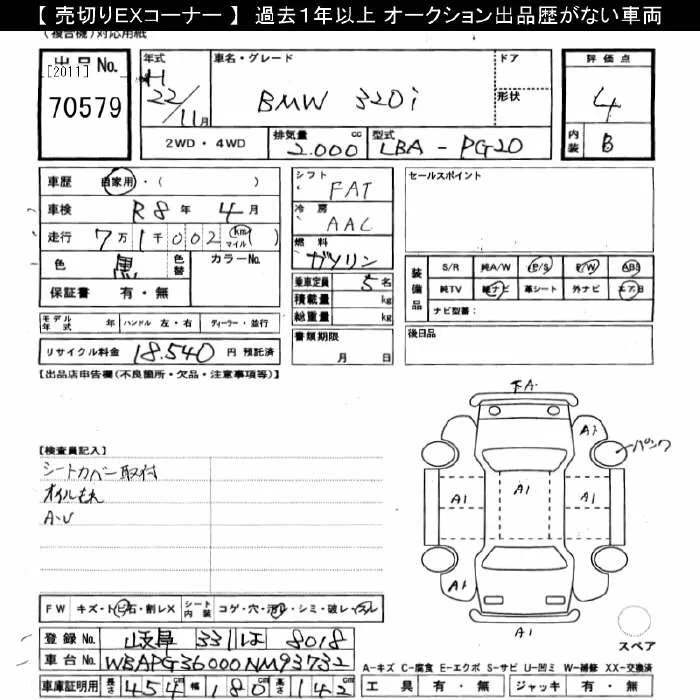 【 売切りEXコーナー 】 過去1年以上 オークション出品歴がない車両
(複合機)対応用紙
出品No. 年式 車名・グレード ドア 評価点
[2011] H 形状
70579 22/11月 BMW 320i 4
2WD・4WD 排気量 2.000cc 型式 LBA-PG20 内装 B
車歴 自家用・( ) シフト FAT セールスポイント
車検 R8年 4月 冷房 AAC
走行 7万1千002 km マイル ( ) 燃料 ガソリン
色 黒 色替 カラーNo. 乗車定員 5名
装備品 S/R 純A/W P/S P/W ABS
保証書 有・無 積載量 kg 純TV 純ナビ 革シート 外ナビ エアB
総重量 kg ナビ型番:
モデル年式 年 ハンドル 左・右 ディーラー・並行 書類期限 月 日 後日品
リサイクル料金 18.540 円 預託済
【出品店申告欄(不良箇所・欠品・注意事項等)】
下A
A1 パンク
【検査員記入】
シートカバー取付
オイルもれ
A1 A1 A1
A・U
A1
FW キズ・トビ石・割レX シート内装 コゲ・穴・汚レ・シミ・破レ・スレ
A1
登録No. 岐阜 331 ほ 8018 スペア
車台No. WBAPG36000NM93732 A－キズ C－腐食 E－エクボ S－サビ U－凹ミ W－補修 XX－交換済
車庫証明用 長さ 454cm 幅 180cm 高さ 142cm 工具 有・無 ジャッキ 有・無